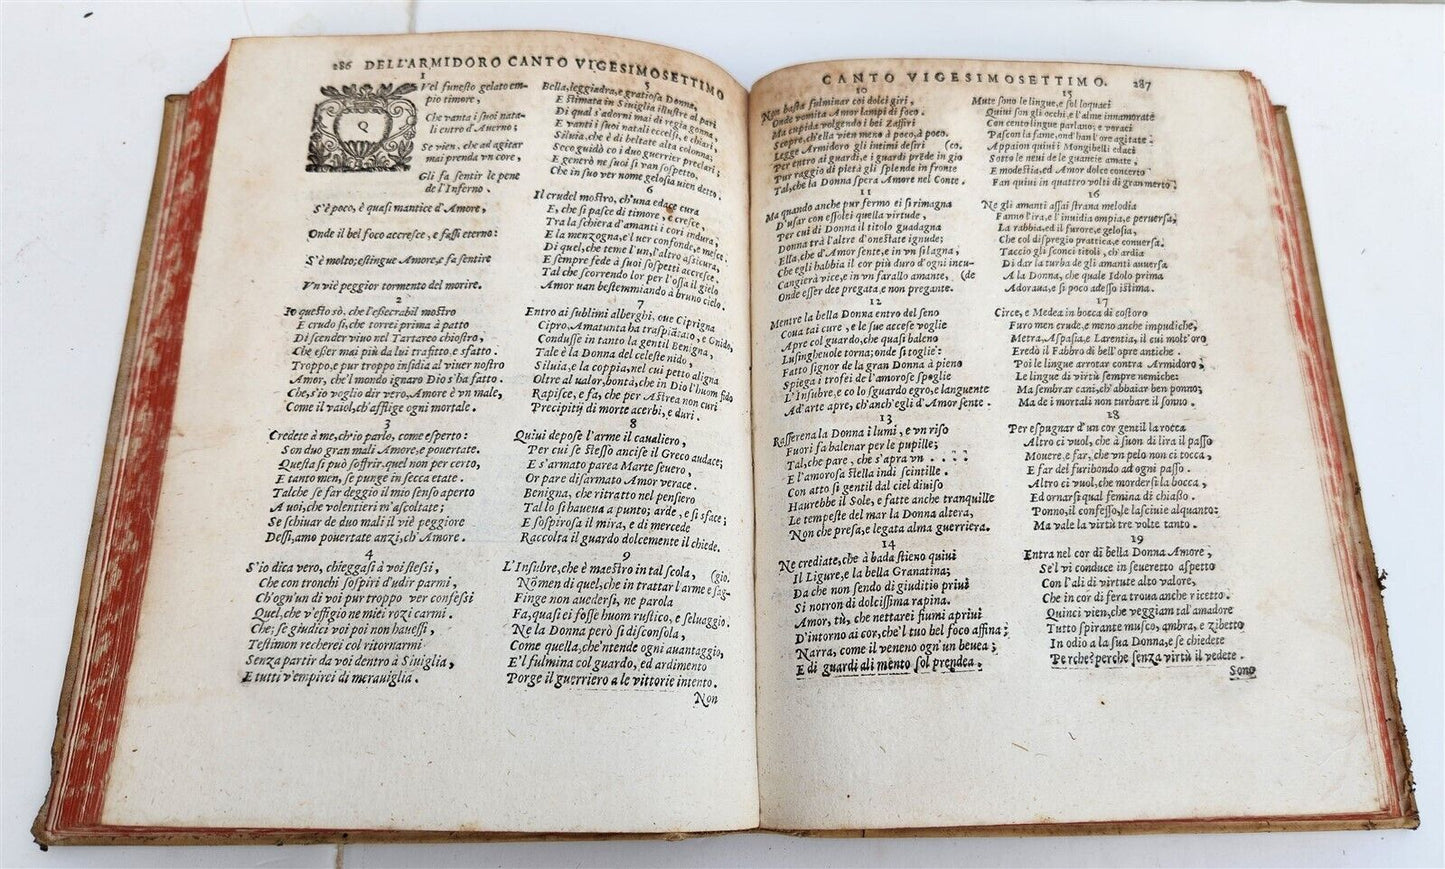 286 DELL'ARMIDORO CANTO VIGESIMOSETTIMO
1
Q
Vel funesto gelato em-
pio timore,
Che vanta i suoi nata-
li entro d'Auerno;
Se vien, che ad agitar
mai prenda vn core,
Gli fa sentir le pene
de l'Inferno.
S'è poco, è quasi mantice d'Amore,
Onde il bel foco accresce, e fassi eterno:
S'è molto; estingue Amore, e fa sentire
Vn viè peggior tormento del morire.
2
Io questo sò, che l'essecrabil mostro
E crudo sì, che torrei prima à patto
Di scender viuo nel Tartareo chiostro,
Che esser mai più da lui trafitto, e sfatto.
Troppo, e pur troppo insidia al viuer nostro
Amor, che'l mondo ignaro Dio s'ha fatto.
Che, s'io voglio dir vero, Amore è vn male,
Come il vaiol, ch'afflige ogni mortale.
3
Credete à me, ch'io parlo, come esperto:
Son duo gran mali Amore, e pouertate.
Questa si può soffrir, quel non per certo,
E tanto men, se punge in secca etate.
Talche se far deggio il mio senso aperto
A uoi, che volentieri m'ascoltate;
Se schiuar de duo mali il viè peggiore
Dessi, amo pouertate anzi, ch'Amore.
4
S'io dica vero, chieggasi à voi stessi,
Che con tronchi sospiri d'udir parmi,
Ch'ogn'un di voi pur troppo ver confessi
Quel, che v'effigio ne miei rozi carmi.
Che; se giudici voi poi non hauessi,
Testimon recherei col ritornarmi
Senza partir da voi dentro à Siuiglia,
E tutti v'empirei di merauiglia.
5
Bella, leggiadra, e gratiosa Donna,
E stimata in Siuiglia illustre al pari
Di qual s'adorni mai di regia gonna,
E vanti i suoi natali eccelsi, e chiari,
Siluia, che è di beltate alta colonna;
Seco guidò co i duo guerrier preclari;
E generò ne suoi si van sospetto,
Che in suo ver nome gelosia uien detto.
6
Il crudel mostro, ch'una edace cura
E, che si pasce di timore, e cresce,
Tra la schiera d'amanti i cori indura,
E la menzogna, e'l uer confonde, e mesce:
Di quel, che teme l'un, l'altro assicura,
E sempre fede à suoi sospetti accresce.
Tal che scorrendo lor per l'ossa il gielo
Amor uan bestemmiando à bruno cielo.
7
Entro ai sublimi alberghi, oue Ciprigna
Cipro, Amatunta ha traspiãtato, e Gnido,
Condusse in tanto la gentil Benigna,
Tale è la Donna del celeste nido,
Siluia, e la coppia, nel cui petto aligna
Oltre al ualor, bontà, che in Dio l'huom fido
Rapisce, e fa, che per Astrea non curi
Precipitij di morte acerbi, e duri.
8
Quiui depose l'arme il caualiero,
Per cui se stesso ancise il Greco audace;
E s'armato parea Marte seuero,
Or pare disarmato Amor verace.
Benigna, che ritratto nel pensiero
Tal lo si haueua a punto; arde, e si sface;
E sospirosa il mira, e di mercede
Raccolta il guardo dolcemente il chiede.
9
L'Insubre, che è maestro in tal scola, (gio.
Nõmen di quel, che in trattar l'arme e sag-
Finge non auedersi, ne parola
Fa, quasi ei fosse huom rustico, e seluaggio.
Ne la Donna però si disconsola,
Come quella, che'ntende ogni auantaggio,
E'l fulmina col guardo, ed ardimento
Porge il guerriero a le vittorie intento.
Non
CANTO VIGESIMOSETTIMO. 287
10
Non basta fulminar coi dolci giri,
Onde vomita Amor lampi di foco.
Ma cupida volgendo i bei Zaffiri
Scopre, ch'ella vien meno à poco, à poco.
Legge Armidoro gli intimi desiri (co,
Per entro ai guardi, e i guardi prẽde in gio
Pur raggio di pietà gli splende in fronte
Tal, che la Donna spera Amore nel Conte.
11
Ma quando anche pur fermo ei si rimagna
D'usar con essolei quella virtude,
Per cui di Donna il titolo guadagna
Donna trà l'altre d'onestate ignude;
Ella, che d'Amor sente, e in vn si lagna,
Che egli habbia il cor più duro d'ogni incu-
Cangierà vice, e in vn farallo amante, (de
Onde esser dee pregata, e non pregante.
12
Mentre la bella Donna entro del seno
Coua tai cure, e le sue accese voglie
Apre col guardo, che quasi baleno
Lusingheuole torna; onde si toglie:
Fatto signor de la gran Donna à pieno
Spiega i trofei de l'amorose spoglie
L'Insubre, e co lo sguardo egro, e languente
Ad'arte apre, ch'anch'egli d'Amor sente.
13
Rasserena la Donna i lumi, e vn riso
Fuori fa balenar per le pupille;
Tal, che pare, che s'apra vn . . . .
E l'amorosa stella indi scintille.
Con atto si gentil dal ciel diuiso
Haurebbe il Sole, e fatte anche tranquille
Le tempeste del mar la Donna altera,
Non che presa, e legata alma guerriera.
14
Ne crediate, che à bada stieno quiui
Il Ligure, e la bella Granatina;
Da che non sendo di giuditio priui
Si notron di dolcissima rapina.
Amor, tù, che nettarei fiumi apriui
D'intorno ai cor, che'l tuo bel foco affina;
Narra, come il veneno ogn'un beuea;
E di guardi alimento sol prendea.
15
Mute sono le lingue, e sol loquaci
Quiui son gli occhi, e l'alme innamorate
Con cento lingue parlano; e voraci
Pascon la fame, ond'han l'ore agitate:
Appaion quiui i Mongibelli edaci
Sotto le neui de le guancie amate,
E modestia, ed Amor dolce concerto
Fan quiui in quattro volti di gran merto.
16
Ne gli amanti assai strana melodia
Fanno l'ira, e l'inuidia empia, e peruersa;
La rabbia, ed il furore, e gelosia,
Che col dispregio prattica, e conuersa.
Taccio gli sconci titoli, ch'ardia
Di dar la turba de gli amanti auuersa
A la Donna, che quale Idolo prima
Adoraua, e si poco adesso istima.
17
Circe, e Medea in bocca di costoro
Furo men crude, e meno anche impudiche,
Metra, Aspasia, e Larentia, il cui molt'oro
Eredò il Fabbro di bell'opre antiche.
Poi le lingue arrotar contra Armidoro,
Le lingue di virtù sempre nemiche:
Ma sembrar cani, ch'abbaiar ben ponno,
Ma de i mortali non turbare il sonno.
18
Per espugnar d'un cor gentil la rocca
Altro ci vuol, che à suon di lira il passo
Mouere, e far, che vn pelo non ci tocca,
E far del furibondo ad ogni passo.
Altro ci vuol, che mordersi la bocca,
Ed ornarsi qual femina di chiasso.
Ponno, il confesso, le lasciuie alquanto:
Ma vale la virtù tre volte tanto.
19
Entra nel cor di bella Donna Amore,
Se'l vi conduce in seueretto aspetto
Con l'ali di virtute alto valore,
Che in cor di fera troua anche ricetto.
Quinci vien, che veggiam tal'amadore
Tutto spirante musco, ambra, e zibetto
In odio a la sua Donna, e se chiedete
Perche? perche senza virtù il vedete.
Sono